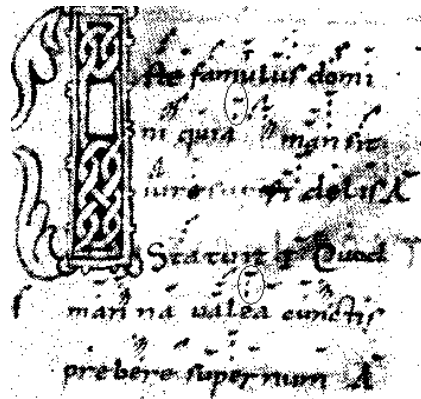 Iste famuluſ domi
ni quia manſit
iure fi deliſ A
Statuit q Quod
mari na ualea cunctiſ
prebere ſuper num A